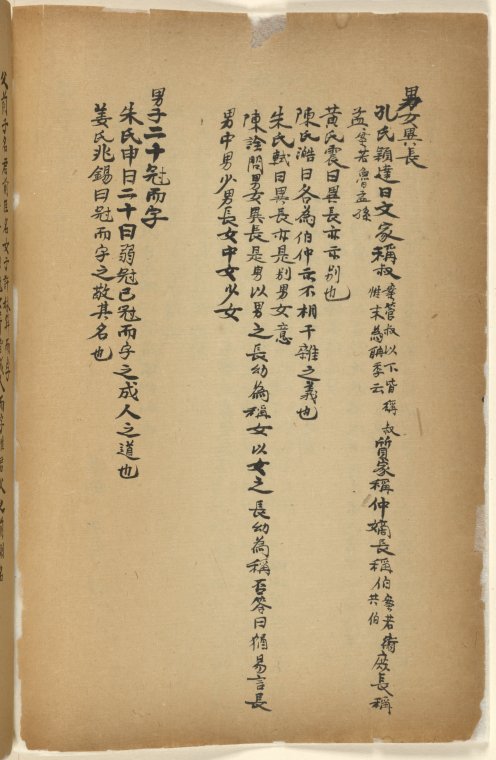 男女異長
孔氏穎達曰文家稱叔案管叔以下皆稱叔惟末為聃季云質家稱仲嫡長稱伯案若衛共伯庶長稱
孟案若魯孟孫
黄氏震曰異長亦示別也
陳氏澔曰各為伯仲示不相干雜之義也
朱氏軾曰異長亦是別男女意
陳詮問男女異長是男以男之長幼為稱女以女之長幼為稱否答曰猶易言長
男中男少男長女中女少女
男子二十冠而字
朱氏申曰二十曰弱冠已冠而字之成人之道也
姜氏兆錫曰冠而字之敬其名也
父前子名君前臣名女子許嫁笄而字